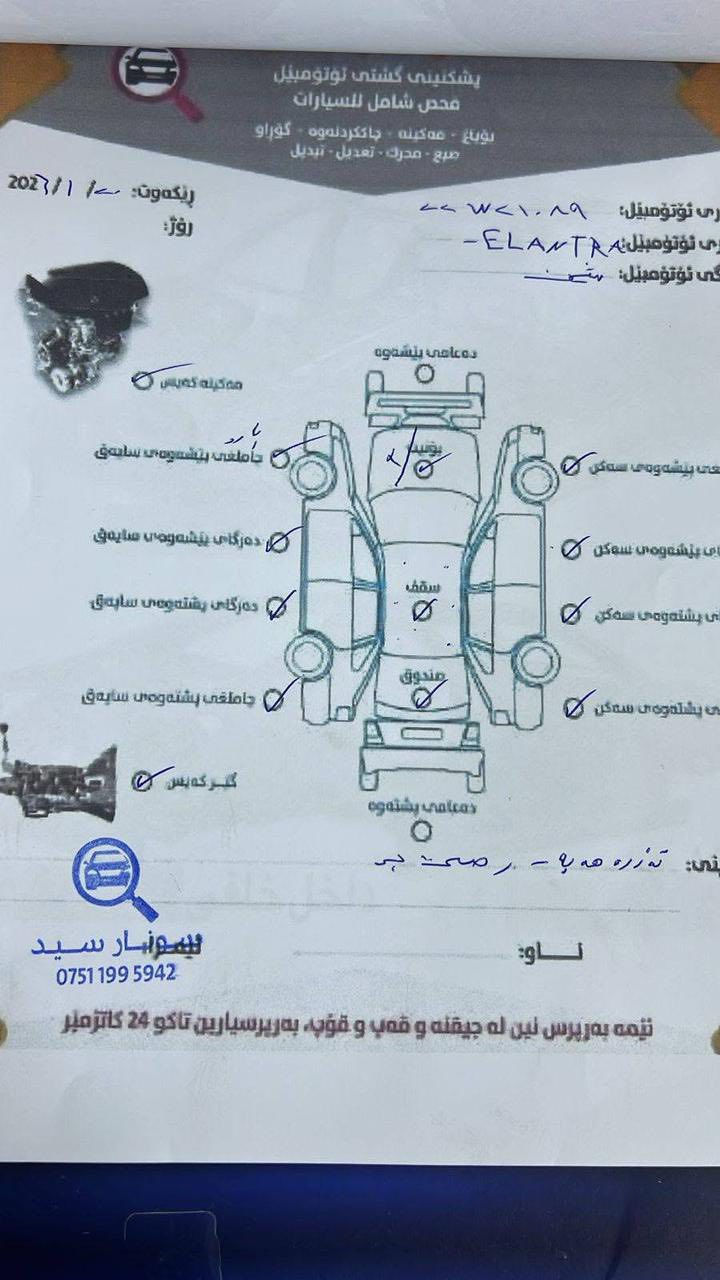 پشکنینی گشتی ئۆتۆمبێل
فحص شامل للسيارات
بۆیاغ - مەکینە - چاککردنەوە - گۆڕاو
صبغ - محرك - تعديل - تبديل
ڕێکەوت: ٢٠٢٣/١/٢
ڕۆژ:
ری ئۆتۆمبێل: ٢٢ W٢١٠٨٩
ری ئۆتۆمبێل: ELANTRA -
گی ئۆتۆمبێل:
دەعامی پێشەوە
مەکینە کەیس
بۆنیت
چاملغی پێشەوەی سایەق
غی پێشەوەی سەکن
دەرگای پێشەوەی سایەق
ای پێشەوەی سەکن
سقف
دەرگای پشتەوەی سایەق
ی پشتەوەی سەکن
صندوق
چاملغی پشتەوەی سایەق
ی پشتەوەی سەکن
گێر کەیس
دەعامی پشتەوە
ینی: تەزرە هەیە -
ناو:
سونار سيد
0751 199 5942
ئێمە بەرپرس نین لە جیقنە و قەپ و قۆپ، بەرپرسیارین تاکو 24 کاتژمێر